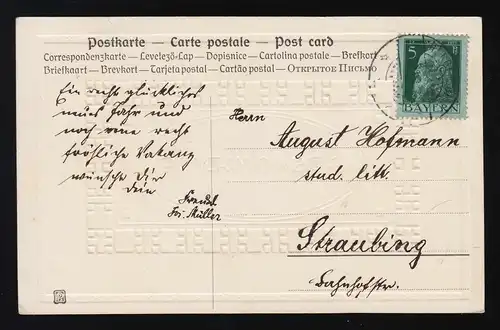 Postkarte – Carte postale – Post card
Correspondenzkarte – Levelező-Lap – Dopisnice – Cartolina postale – Brefkort
Briefkaart – Brevkort – Tarjeta postal – Cartão postal – Открытое Письмо
Ein recht glückliches
neues Jahr und
noch eine recht
fröhliche Vakanz
wünscht Dir
Dein
Freund
Fr. Müller
Herrn
August Hofmann
stud. litt.
Straubing
Bahnhofstr.
5
BAYERN